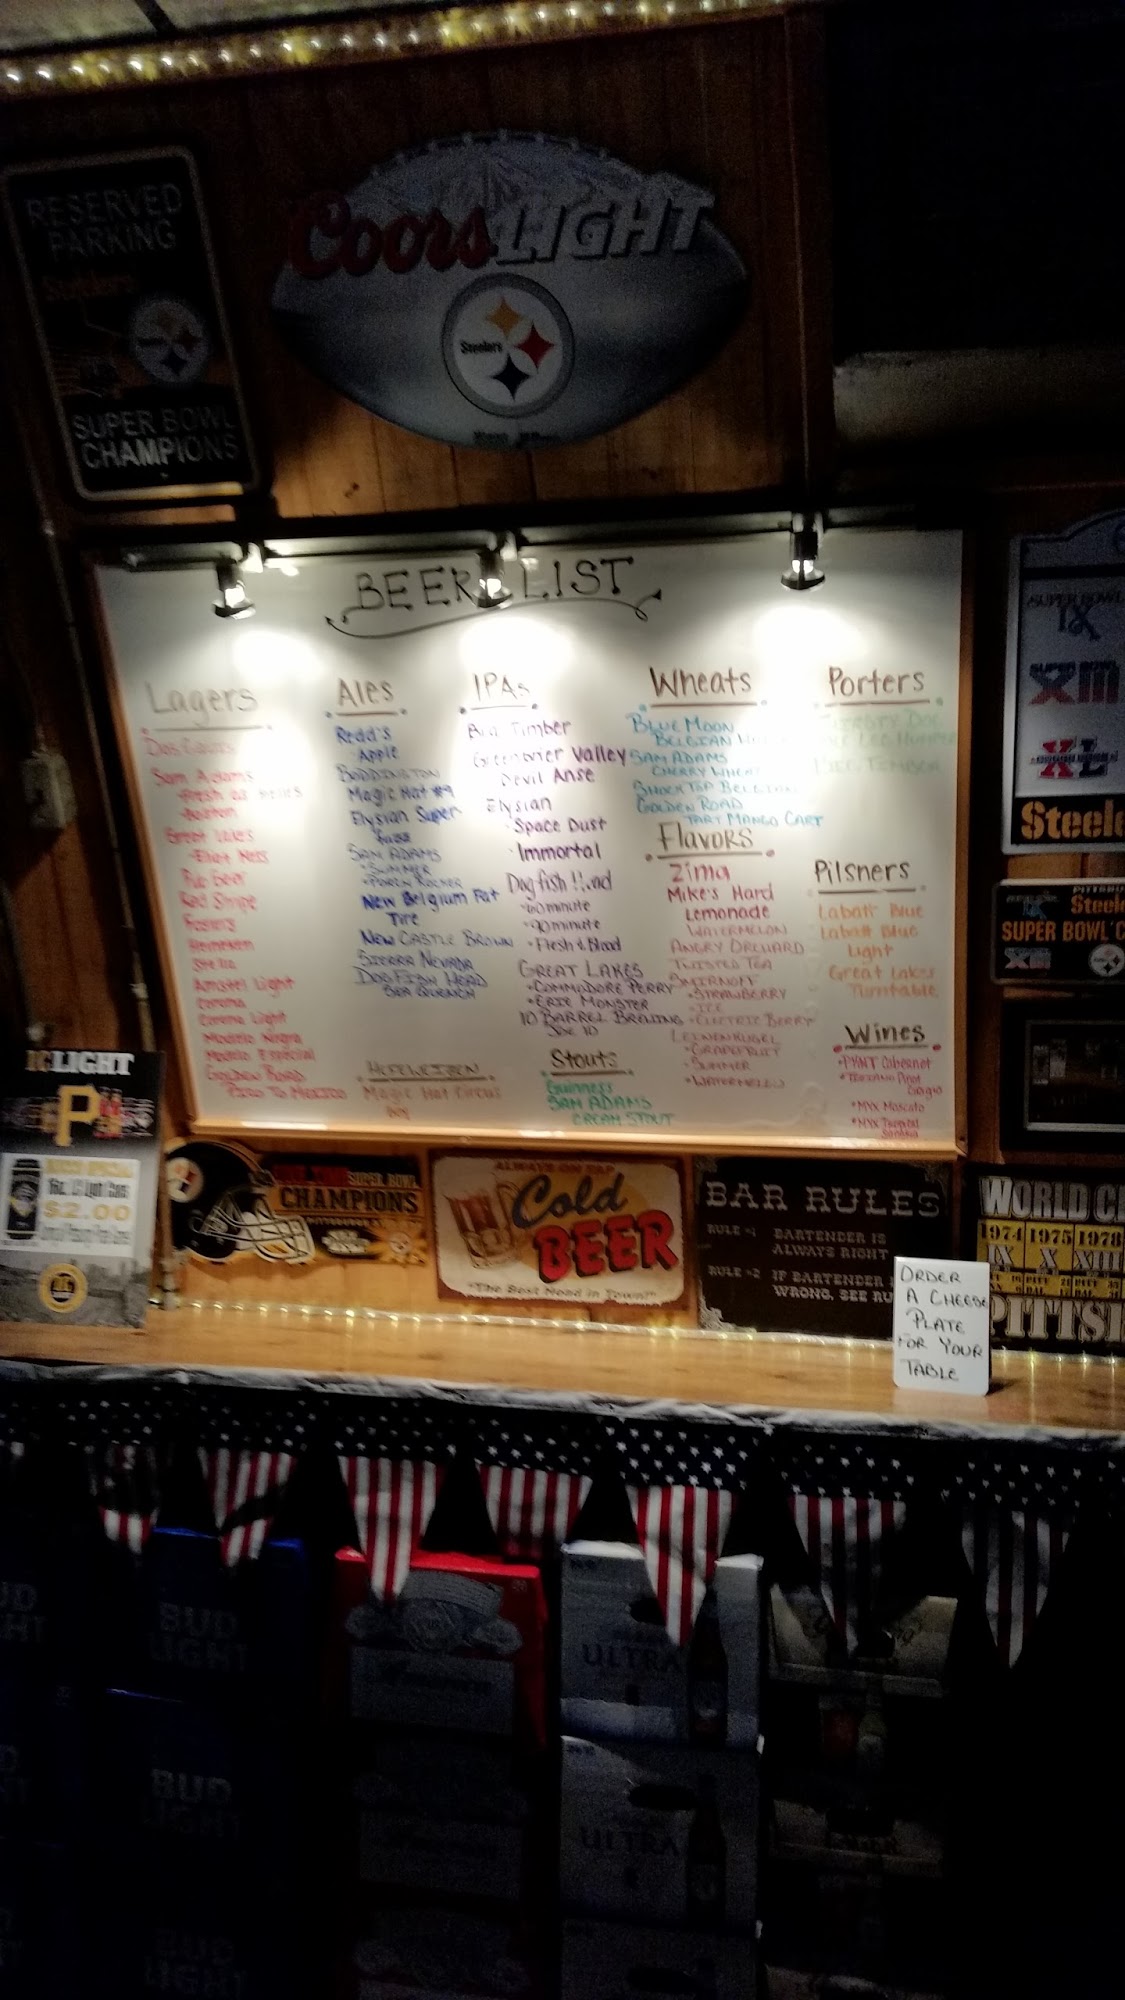 RESERVED
PARKING
Steelers
SUPER BOWL
CHAMPIONS
Coors LIGHT
Steelers
BEER LIST
Lagers
Dos Equis
Sam Adams
Boston
Great Lakes
-Eliot Ness
Red Stripe
Fosters
Heineken
Stella
Amstel Light
Corona
Corona Light
Modelo Negra
Modelo Especial
Golden Road
Ales
Redd's
Apple
BODDINGTON
Magic Hat #9
Elysian Super
Fuzz
SAM ADAMS
-SUMMER
-PORCH ROCKER
New Belgium Fat
Tire
NEW CASTLE BROWN
SIERRA NEVADA
DOGFISH HEAD
SEA QUENCH
HEFEWEIZEN
Magic Hat Circus
Boy
IPAs
Big Timber
Greenbrier Valley
Devil Anse
Elysian
Space Dust
Immortal
Dogfish Head
-60 minute
-90 minute
-Flesh & Blood
GREAT LAKES
-COMMODORE PERRY
-ERIE MONSTER
10 BARREL BREWING
JOE 10
Stouts
Guinness
SAM ADAMS
CREAM STOUT
Wheats
BLUE MOON
BELGIAN
SAM ADAMS
CHERRY WHEAT
SHOCK TOP BELGIAN
GOLDEN ROAD
TART MANGO CART
FLAVORS
Zima
Mike's Hard
Lemonade
WATERMELON
ANGRY ORCHARD
TWISTED TEA
SMIRNOFF
-STRAWBERRY
-ICE
-ELECTRIC BERRY
LEINENKUGEL
-GRAPEFRUIT
-SUMMER
-WATERMELON
Porters
THIRSTY DOG
LEG HUMPER
BIG TIMBER
Pilsners
Labatt Blue
Labatt Blue
Light
Great Lakes
Turntable
Wines
Cabernet
Pinot
Grigio
*MYX Moscato
*MYX Tropical
LIGHT
P
$2.00
SUPER BOWL
CHAMPIONS
ALWAYS ON TAP
Cold
BEER
"The Best Head in Town!"
BAR RULES
RULE #1 BARTENDER IS
ALWAYS RIGHT
RULE #2 IF BARTENDER
WRONG, SEE RU
ORDER
A CHEESE
PLATE
FOR YOUR
TABLE
SUPER BOWL
IX
SUPER BOWL
XIII
XL
Steele
PITTSBU
Steele
SUPER BOWL C
XIII
WORLD C
1974 1975 1978
IX X XIII
PITTS
BUD
LIGHT
BUD
LIGHT
ULTRA
ULTRA